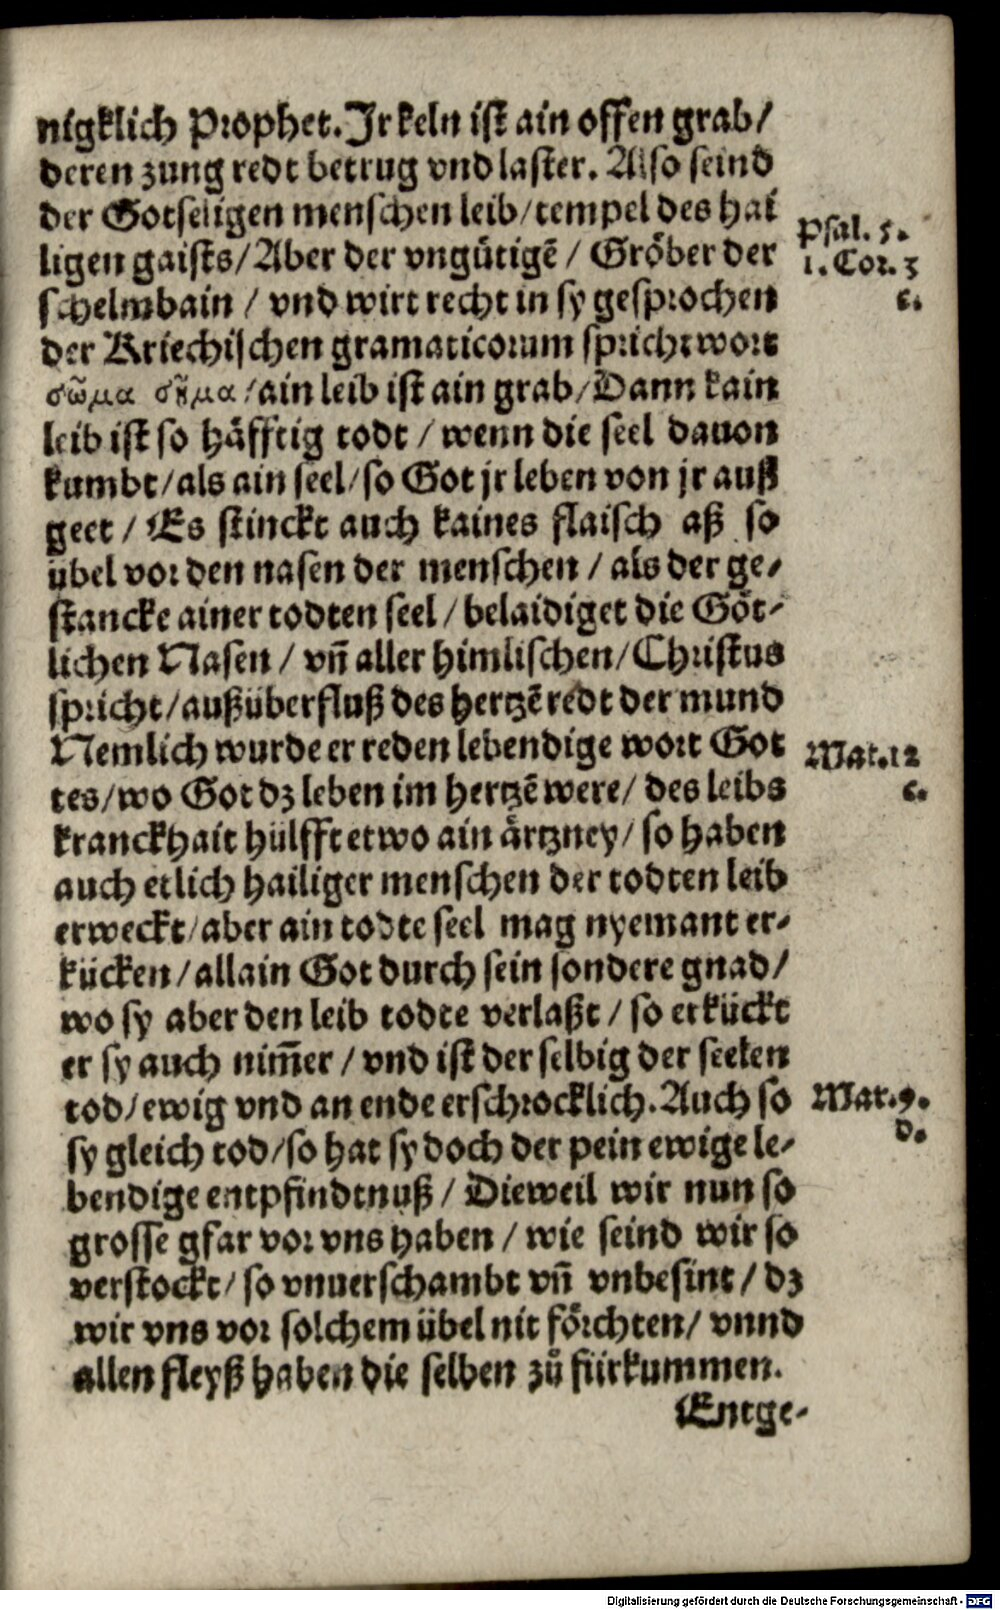 nigklich Prophet. Jr keln ist ain offen grab/
deren zung redt betrug vnd laster. Also seind
der Gotseligen menschen leib/tempel des hai
ligen gaists/Aber der vngütigē / Gröber der
schelmbain / vnd wirt recht in sy gesprochen
der Kriechischen gramaticorum sprichtwort
σῶμα σῆμα/ain leib ist ain grab/Dann kain
leib ist so häfftig todt / wenn die seel dauon
kumbt/als ain seel/so Got jr leben von jr auß
geet / Es stinckt auch kaines flaisch aß so
übel vor den nasen der menschen / als der ge-
stancke ainer todten seel / belaidiget die Göt-
lichen Nasen / vñ aller himlischen/Christus
spricht/außüberfluß des hertzē redt der mund
Nemlich wurde er reden lebendige wort Got
tes/wo Got dz leben im hertzē were/ des leibs
kranckhait hülfft etwo ain ärtzney/ so haben
auch etlich hailiger menschen der todten leib
erweckt/aber ain todte seel mag nyemant er-
kücken/allain Got durch sein sondere gnad/
wo sy aber den leib todte verlaßt / so erkückt
er sy auch nim̄er / vnd ist der selbig der seelen
tod/ewig vnd an ende erschrocklich. Auch so
sy gleich tod/so hat sy doch der pein ewige le-
bendige entpfindtnuß / Dieweil wir nun so
grosse gfar vor vns haben / wie seind wir so
verstockt/so vnuerschambt vñ vnbesint / dz
wir vns vor solchem übel nit förchten/ vnnd
allen fleyß haben die selben zů fürkummen.
Entge-
Psal. 5.
1. Cor. 3
c.
Mat. 12
c.
Mat. 9.
d.
Digitalisierung gefördert durch die Deutsche Forschungsgemeinschaft - DFG